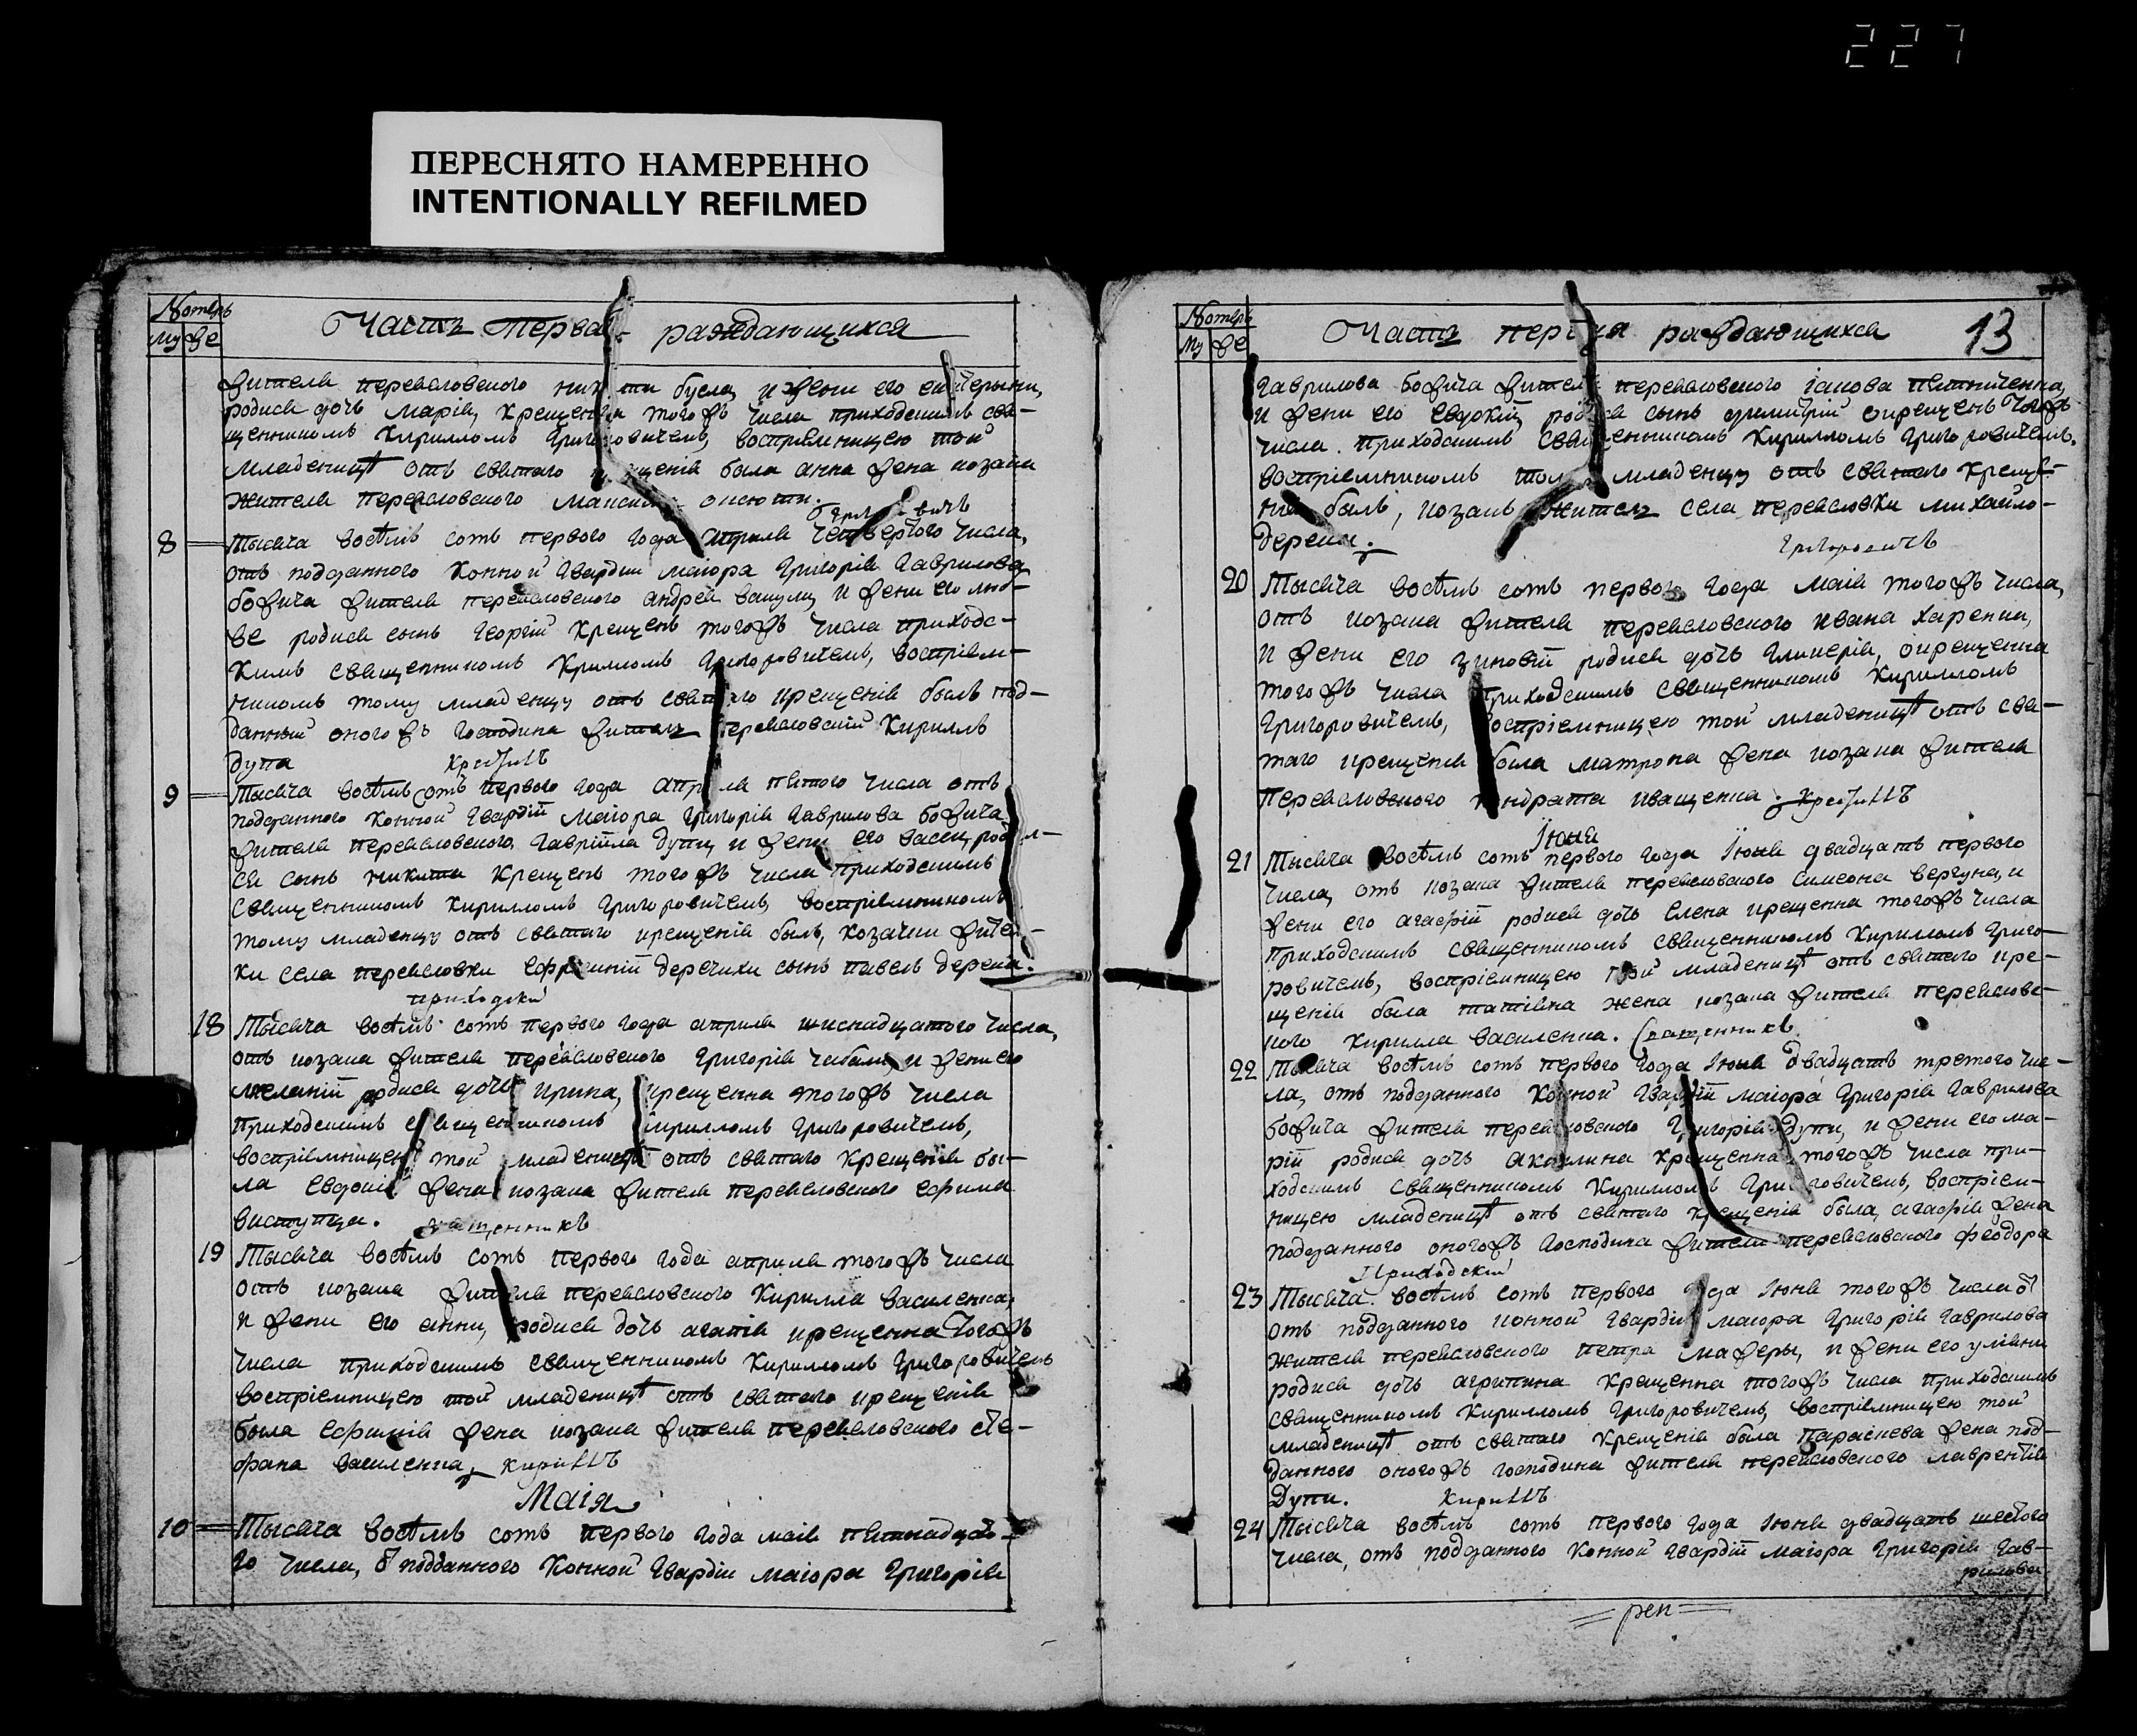 227
ПЕРЕСНЯТО НАМЕРЕННО
INTENTIONALLY REFILMED
Номеръ
Му же
Часть перва раждающихся
жителя переясловского никити бусла, и жени его екатерыни,
родися дочь марія, крещенна тогожъ числа приходскимъ свя-
щенникомъ Кирилломъ Григоровичемъ, воспріемницею той
младеницѣ отъ святаго крещенія была анна жена козака
жителя переясловского максима
8 Тысяча восѣмъ сотъ первого года априля четвертого числа,
отъ подданного Конной Гвардіи маіора Григорія Гаврилова
божича жителя переясловского андрея и жени его люб-
ве родися сынъ Георгій крещенъ тогожъ числа приходс-
кимъ священникомъ Криломъ Григоровичемъ, воспріем-
никомъ тому младенцу отъ святаго крещенія былъ под-
данный оногожъ Господина житель переясловскій Кириллъ
Дупа
9 Тысяча восѣмъ сотъ первого года априля пятого числа отъ
подданного Конной Гвардій маіора Григорія Гаврилова божича
жителя переясловского, Гавріила дупи, и жени его васси, роди-
ся сынъ никита крещенъ тогожъ числа приходскимъ
священникомъ Кирилломъ Григоровичемъ, воспріемникомъ
тому младенцу отъ святаго крещенія былъ, козачки жител-
ки села переясловки деречихи сынъ павелъ дерека.
приходскій
18 Тысяча восѣмъ сотъ первого года априля шиснадцатого числа,
отъ козака жителя переясловского Григорія и жени его
меланій родися дочь ирина, крещенна тогожъ числа
приходскимъ священникомъ Кирилломъ Григоровичемъ,
воспріемницею той младеницѣ отъ святаго крещенія бы-
ла жена козака жителя переясловского ефима
виступца. священникъ
19 Тысяча восѣмъ сотъ первого года априля тогожъ числа
отъ козака жителя переясловского Кирилла василенка,
и жени его анни, родися дочь агапія крещенна тогожъ
числа приходскимъ священникомъ Кирилломъ Григоровичемъ
воспріемницею той младеницѣ отъ святаго крещенія
была ефимія жена козака жителя переясловского сте-
фана василенка, кириллъ
Маія
10 Тысяча восѣмъ сотъ первого года маія пятнадцато-
го числа, ѿ подданного Конной Гвардіи маіора Григорія
Номеръ
Му же
Часть первая раждающихся 13
Гаврилова божича жителя переясловского іакова пятниченка,
и жени его евдокій, родися сынъ димитрій окрещенъ тогожъ
числа приходскимъ священникомъ Кирилломъ Григоровичемъ.
воспріемникомъ тому младенцу отъ святаго креще-
нія былъ, козакъ житель села переясловки михайло-
дерека. Григоровичъ
20 Тысяча восѣмъ сотъ первого года маія тогожъ числа,
отъ козака жителя переясловского ивана харенка,
и жени его зиновій родися дочь гликерія, окрещенна
тогожъ числа приходскимъ священникомъ Кирилломъ
Григоровичемъ, воспріемницею той младеницѣ отъ свя-
таго крещенія была матрона жена козака жителя
переясловского кондрата иващенка.
Іюня
21 Тысяча восѣмъ сотъ первого года Іюня двадцать первого
числа, отъ козака жителя переясловского симеона вергуна, и
жени его агафій родися дочь Елена крещенна тогожъ числа
приходскимъ священникомъ священникомъ Кирилломъ Григо-
ровичемъ, воспріемницею той младеницѣ отъ святаго кре-
щенія была татіяна жена козака жителя переяслов-
кого Кирилла василенка. священникъ
22 Тысяча восѣмъ сотъ первого года Іюня двадцать третого чис-
ла, отъ подданного Конной Гвардій маіора Григорія Гаврилова
божича жителя переясловского Григорія Дупи, и жени его ма-
рій родися дочь акилина крещенна тогожъ числа при-
ходскимъ священникомъ Кирилломъ Григоровичемъ, воспріем-
ницею младеницѣ отъ святаго крещенія была, агафія жена
подданного оногожъ Господина жителя переясловского феодора
Приходскій
23 Тысяча восѣмъ сотъ первого года Іюня тогожъ числа ѿ
отъ подданного конной Гвардіи маіора Григорія Гаврилова
жителя переясловского петра мажеры, и жени его уліяни
родися дочь агрипина крещенна тогожъ числа приходскимъ
священникомъ Кирилломъ Григоровичемъ, воспріемницею той
младеницѣ отъ святаго крещенія была Параскева жена под-
данного оногожъ господина жителя переясловского лаврентія
Дупи. Кириллъ
24 Тысяча восѣмъ сотъ первого года Іюня двадцать шестого
числа, отъ подданного Конной Гвардій маіора Григорія Гав-
рилова